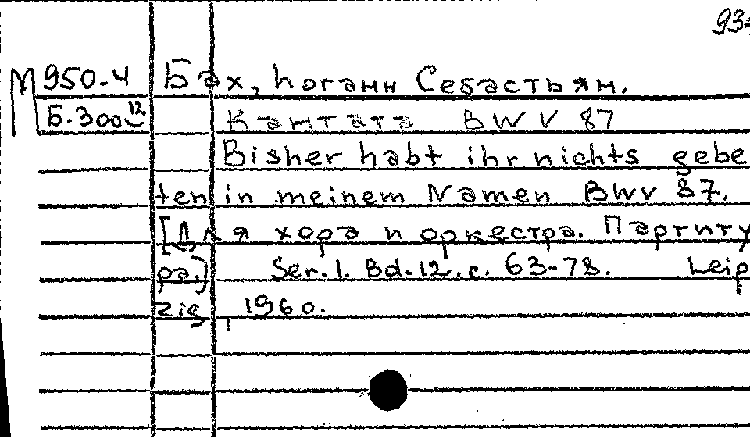 93
М 950-4 Бах, Иоганн Себастьян.
Б-300 12 Кантата BWV 87
Bisher habt ihr nichts gebe
ten in meinem Namen BWV 87.
[Для хора и оркестра. Партиту
ра.] Ser.1. Bd.12. с. 63-78. Leip
zig, 1960.